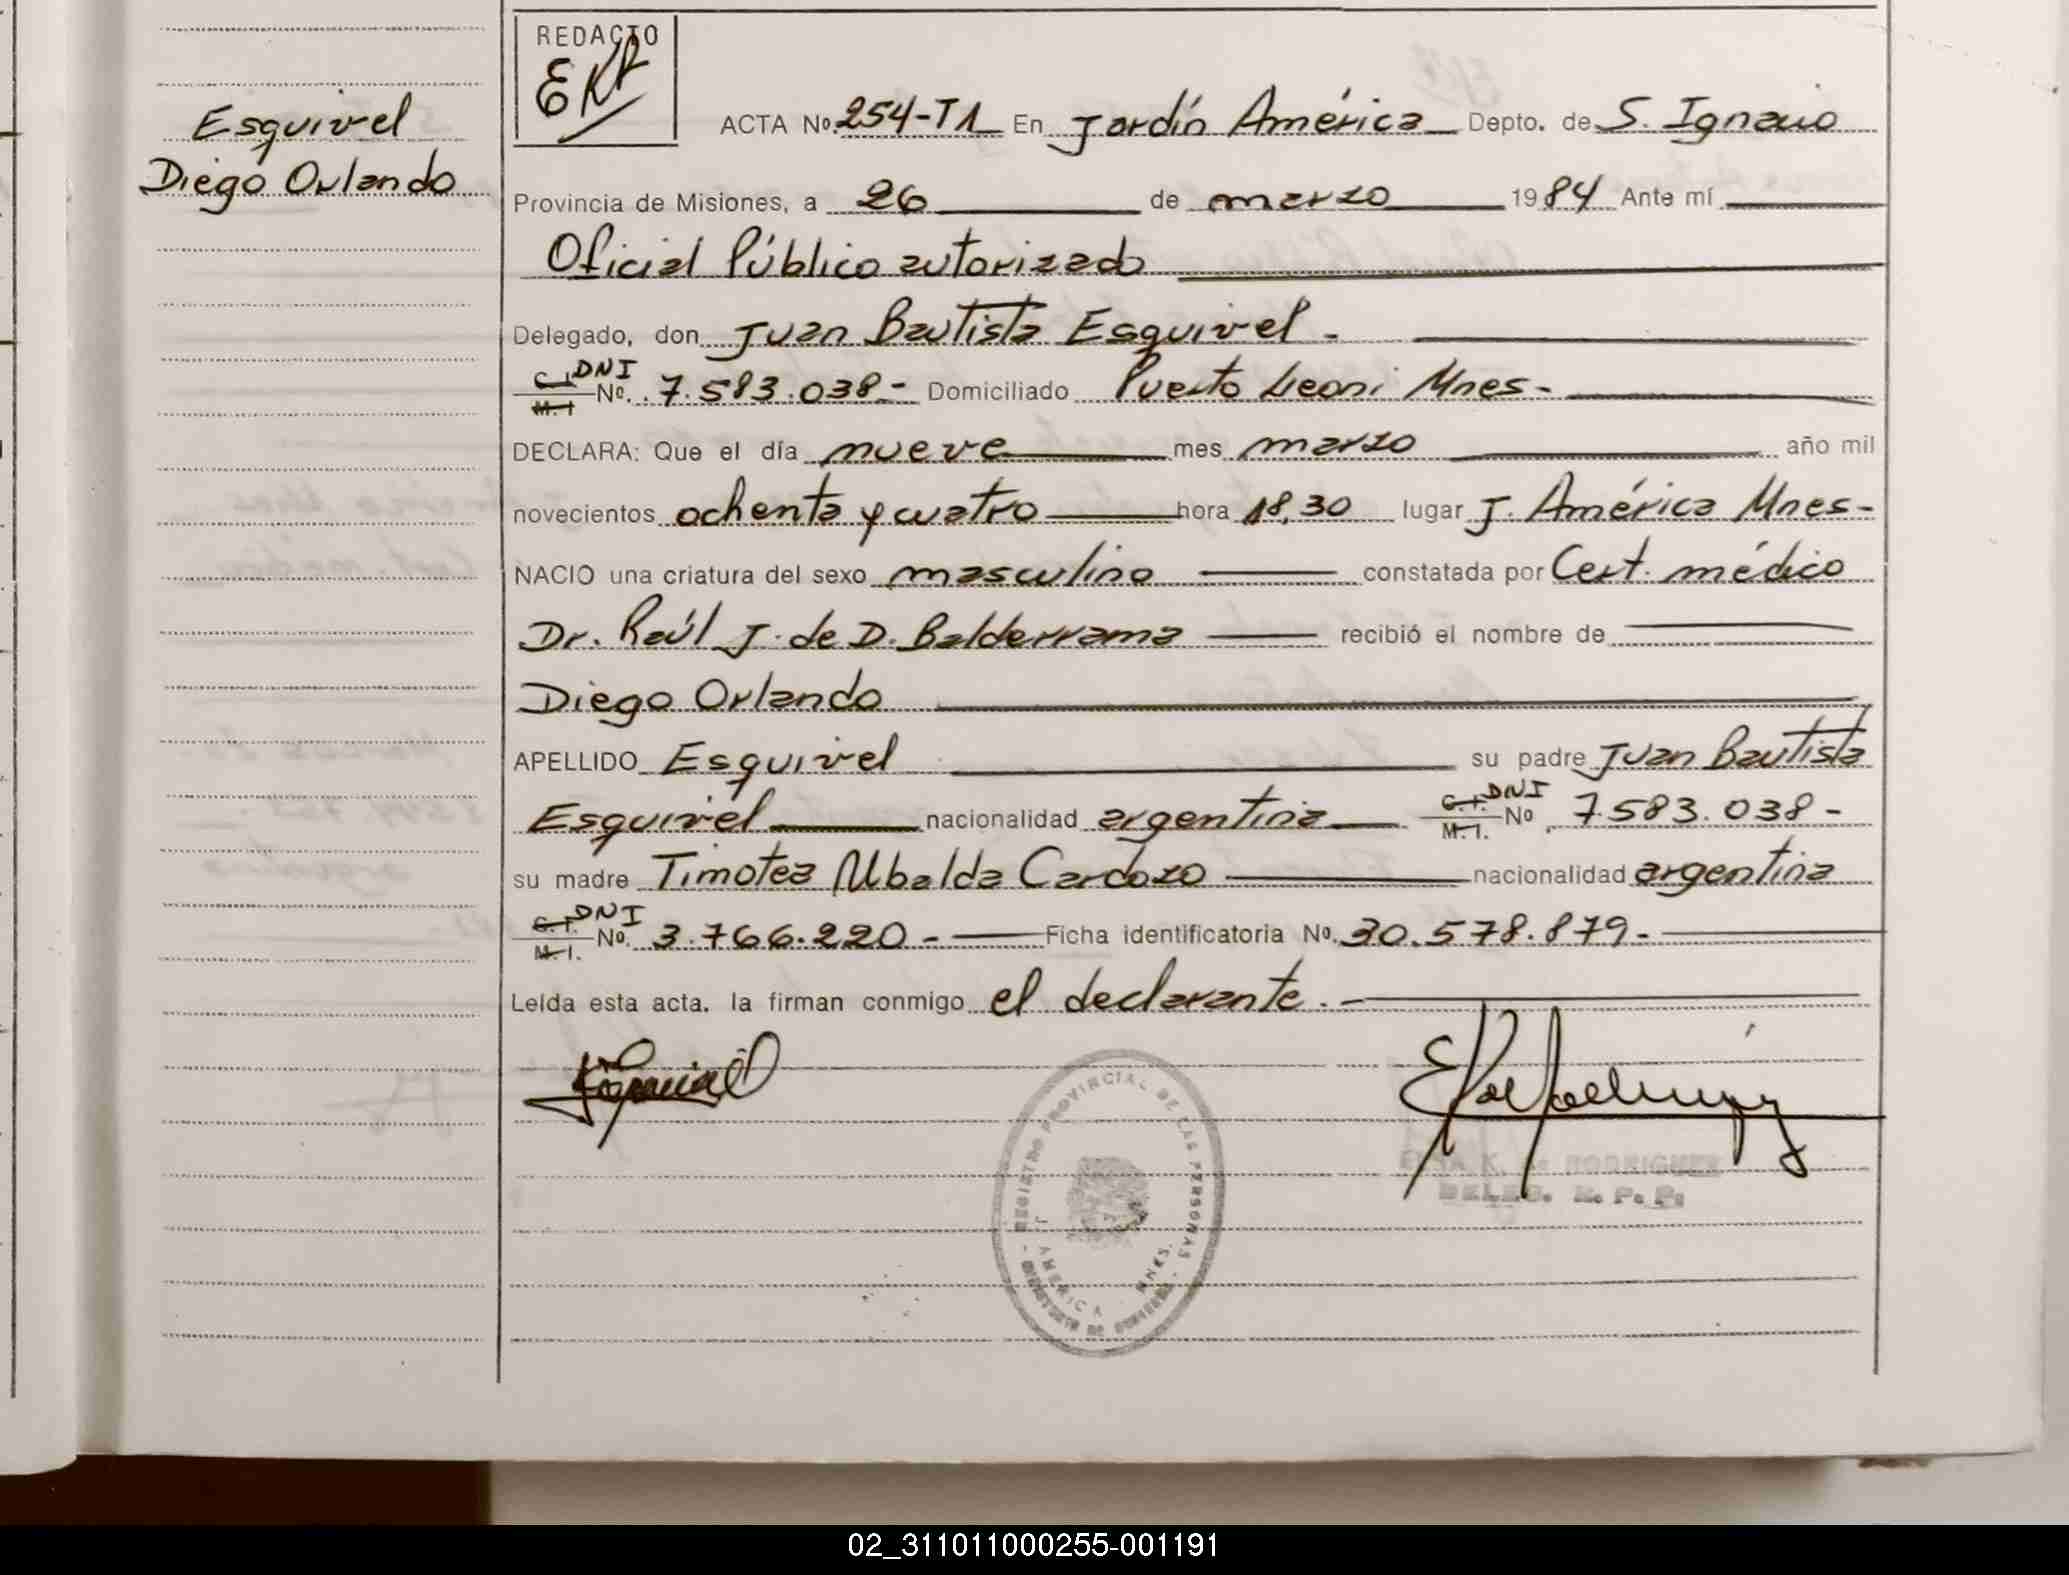 Esquivel
Diego Orlando
REDACTO
EKR
ACTA No. 254-T1 En Jardín América Depto. de S. Ignacio
Provincia de Misiones, a 26 de marzo 1984 Ante mí
Oficial Público autorizado
Delegado, don Juan Bautista Esquivel -
C.I. DNI
M.I No. 7.583.038 - Domiciliado Puerto Leoni Mnes -
DECLARA: Que el día nueve mes marzo año mil
novecientos ochenta y cuatro hora 18,30 lugar J. América Mnes -
NACIO una criatura del sexo masculino constatada por Cert. médico
Dr. Raúl J. de D. Balderrama recibió el nombre de
Diego Orlando
APELLIDO Esquivel su padre Juan Bautista
Esquivel nacionalidad argentina C.I. DNI M.I. No 7.583.038 -
su madre Timotea Ubalda Cardozo nacionalidad argentina
C.I. DNI
M.I. No. 3.766.220 - Ficha identificatoria No. 30.578.879 -
Leída esta acta, la firman conmigo el declarante. -
REGISTRO PROVINCIAL DE LAS PERSONAS
AMERICA - MNES.
ELSA K. de RODRIGUEZ
DELEG. R. P. P.
02_311011000255-001191